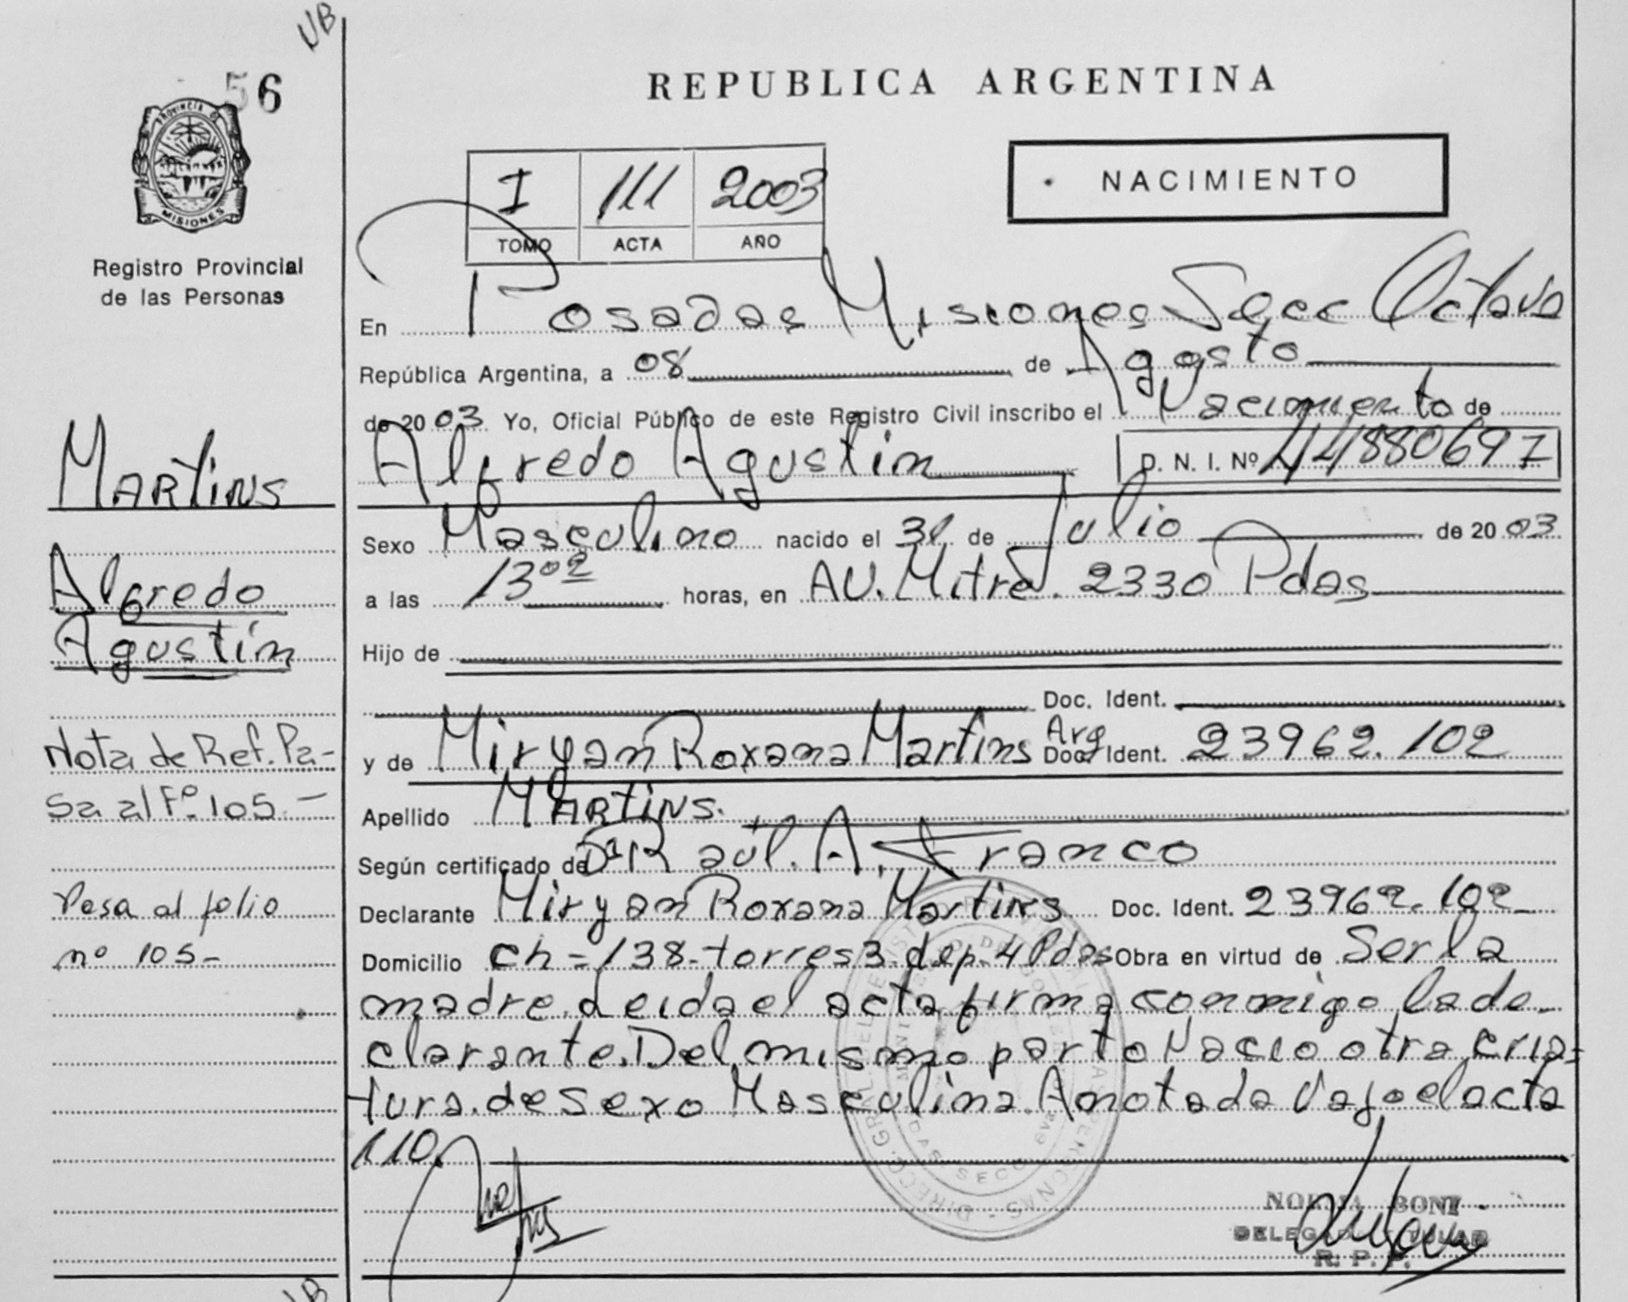 UB
56
REPUBLICA ARGENTINA
PROVINCIA DE
MISIONES
Registro Provincial
de las Personas
I 111 2003
TOMO ACTA AÑO
NACIMIENTO
En Posadas Misiones Secc Octava
República Argentina, a 08 de Agosto
de 2003 Yo, Oficial Público de este Registro Civil inscribo el Nacimiento de
Alfredo Agustin D. N. I. Nº 44880697
MARTINS
Sexo Masculino nacido el 31 de Julio de 2003
Alfredo
a las 13 02 horas, en AU. Mitre. 2330 Pdas
Agustín
Hijo de
Doc. Ident.
Nota de Ref. Pa-
y de Miryan Roxana Martins Arg Doc. Ident. 23962.102
sa al Fº 105.-
Apellido MARTINS.
Según certificado de Dr Raúl. A. Franco
Pasa al folio
Declarante Miryan Roxana Martins Doc. Ident. 23962.102
nº 105-
Domicilio ch=138-torres 3. dep. 4 Pdas Obra en virtud de Ser la
madre. Leida el acta firma conmigo la de-
clarante. Del mismo parto Nacio otra cria-
tura. de sexo Masculina. Anotada Vajo el acta
110.
NORMA BONI
DELEGADO TITULAR
R. P. P.
UB